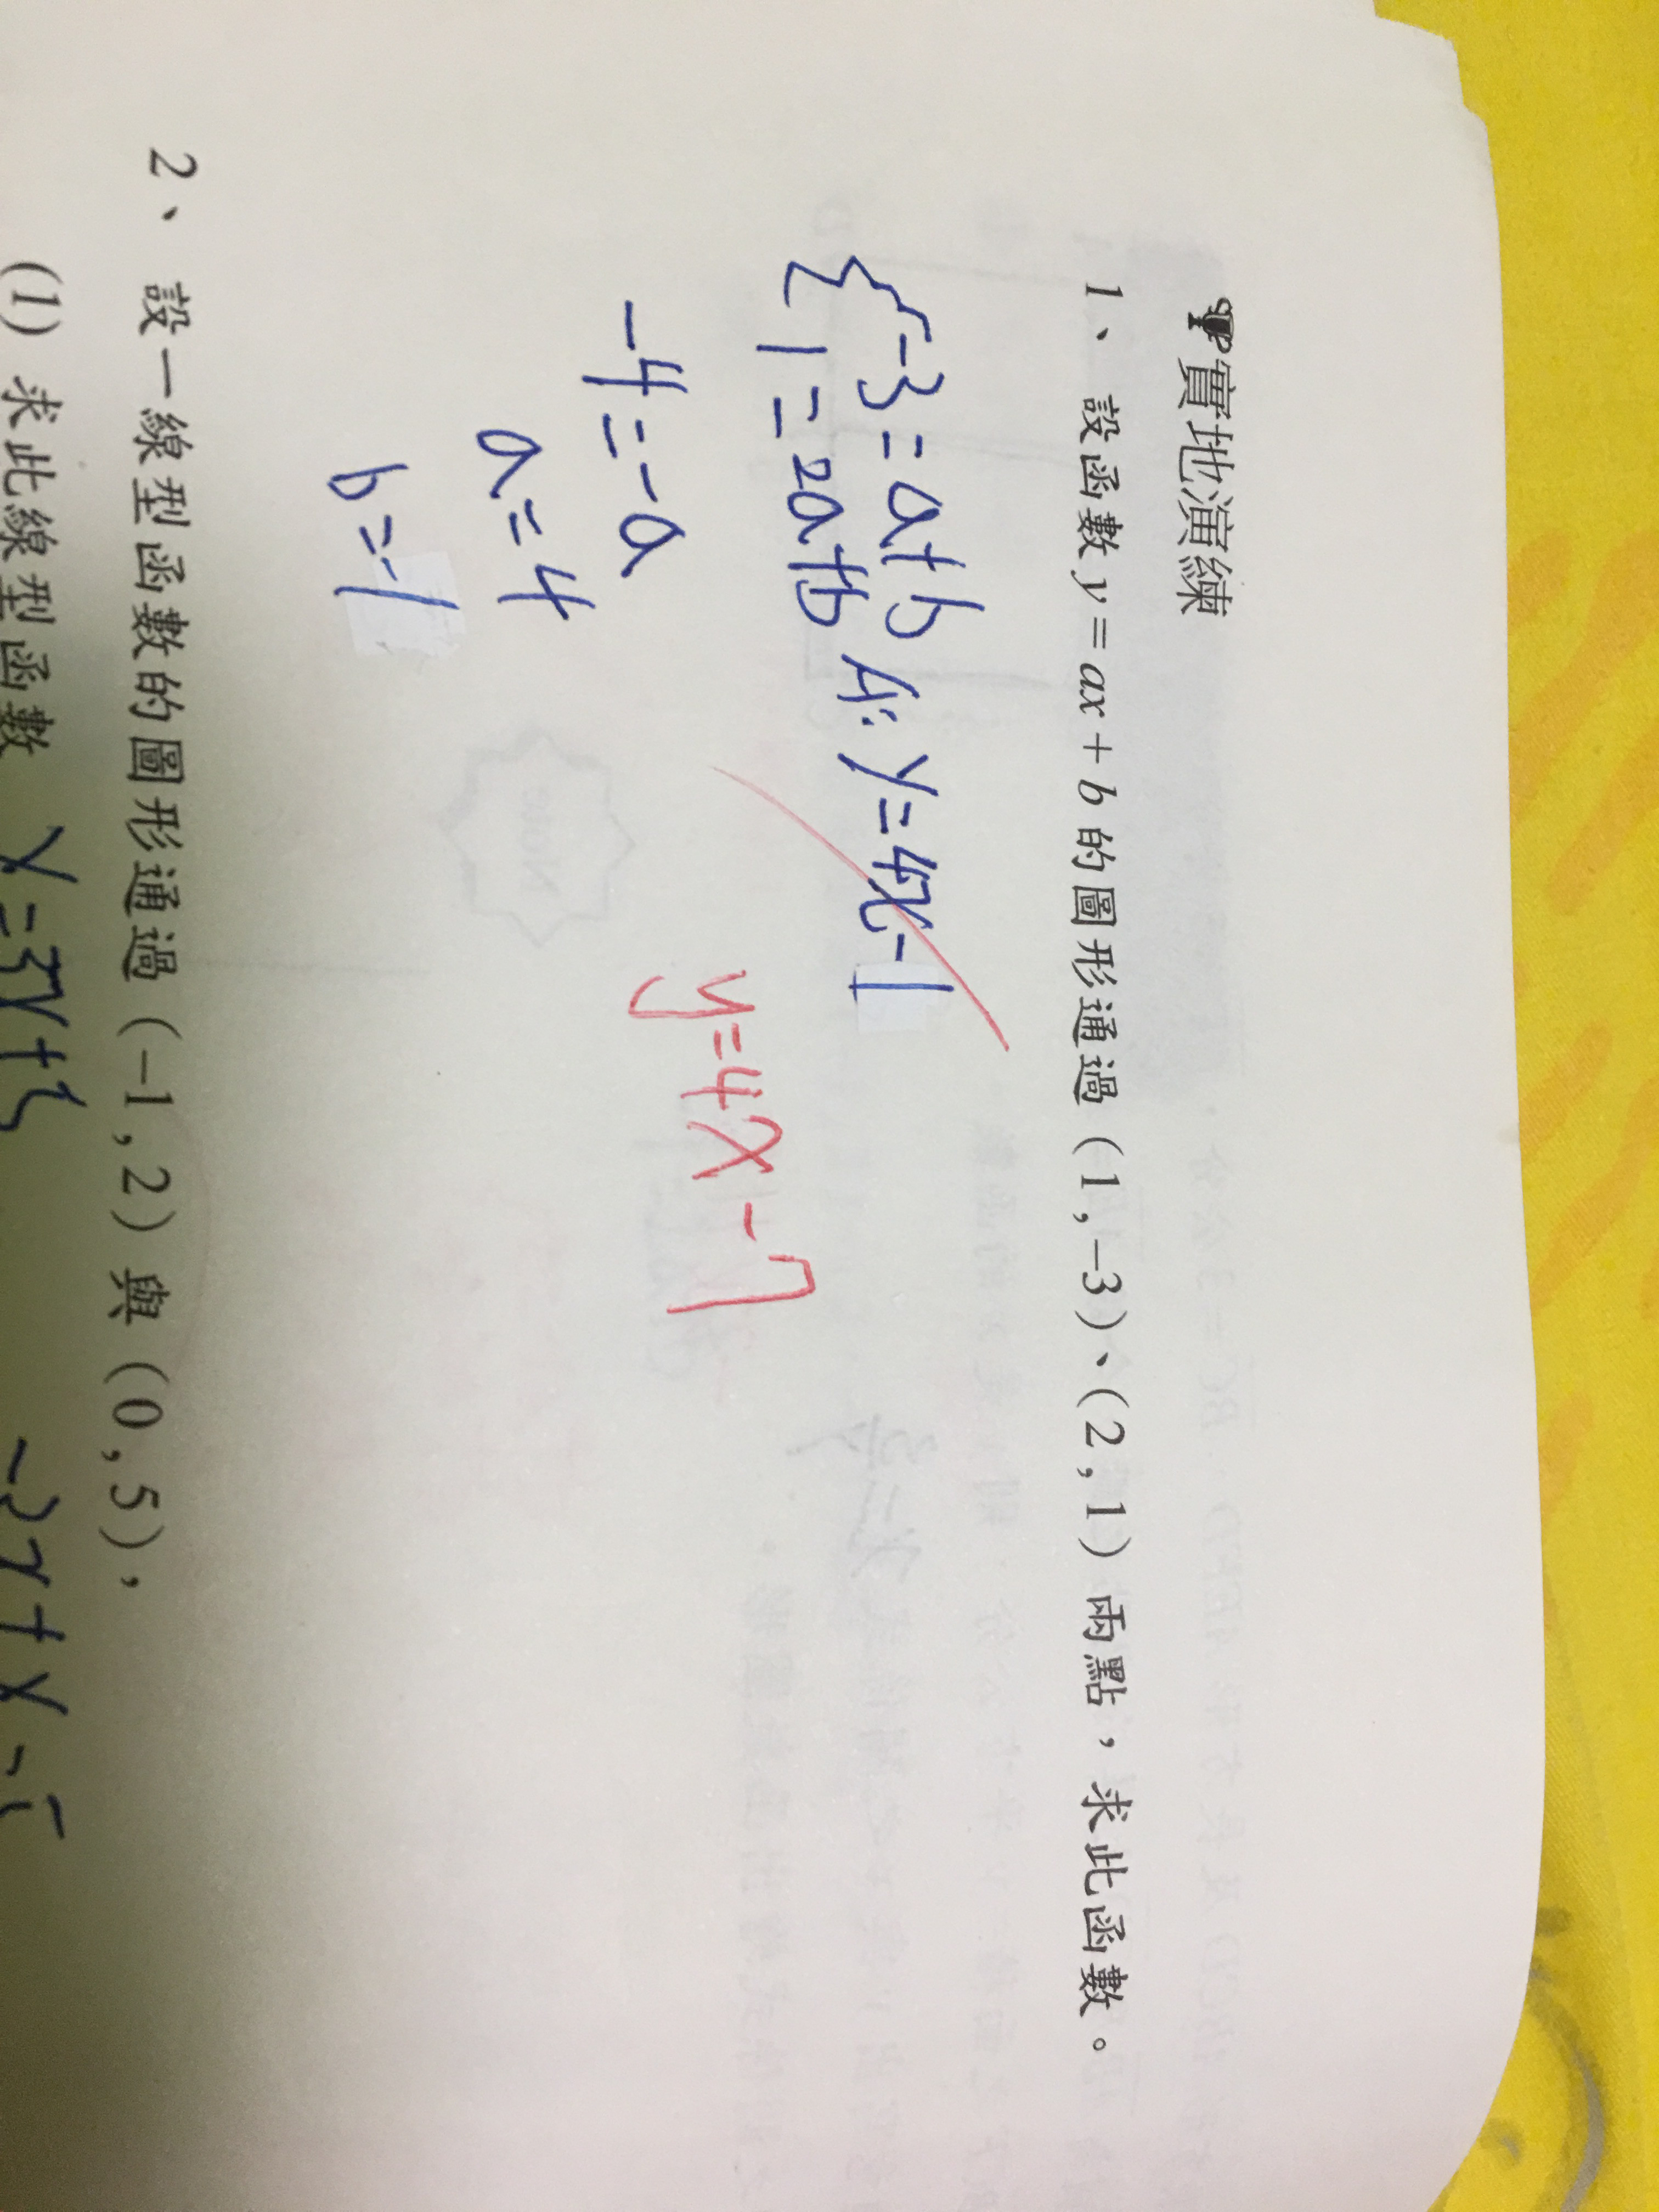 實地演練
1、設函數 y = ax + b 的圖形通過 (1,-3)、(2,1) 兩點，求此函數。
{-3=a+b
1=2a+b
A: y=4x-1
-4=-a
a=4
b=-1
y=4x-7
2、設一線型函數的圖形通過 (-1,2) 與 (0,5)，
(1) 求此線型函數